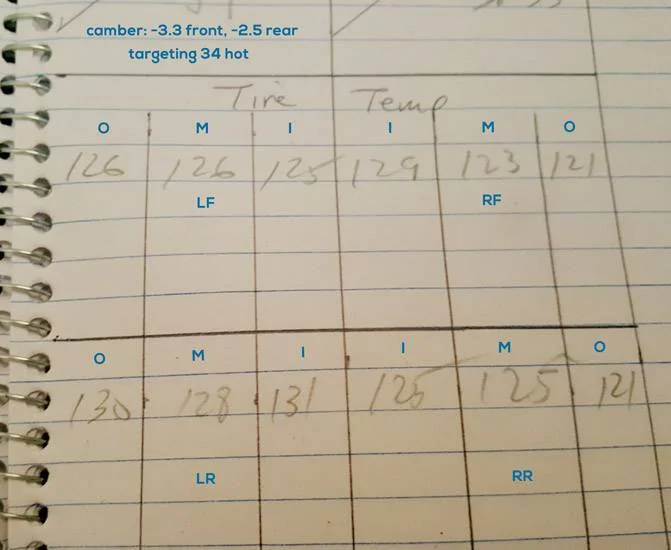 camber: -3.3 front, -2.5 rear
targeting 34 hot
Tire Temp
O M I I M O
126 126 125 129 123 121
LF RF
O M I I M O
130 128 131 125 125 121
LR RR